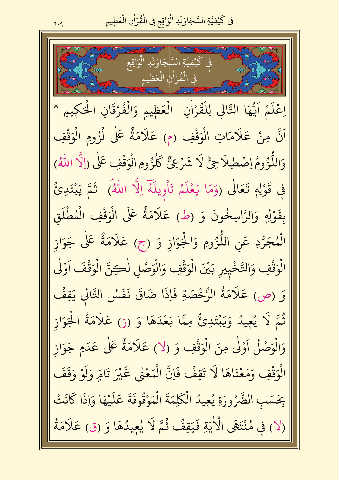 فِى كَيْفِيَّةِ السَّجَاوَنْدِ الْوَاقِعِ فِى الْقُرْآنِ الْعَظِيمِ
فِى كَيْفِيَّةِ السَّجَاوَنْدِ الْوَاقِعِ
فِى الْقُرْآنِ الْعَظِيمِ
اِعْلَمْ اَيُّهَا التَّالِى لِلْقُرْاٰنِ الْعَظِيمِ وَالْفُرْقَانِ الْحَكِيمِ *
اَنَّ مِنْ عَلَامَاتِ الْوَقْفِ (م) عَلَامَةٌ عَلٰى لُزُومِ الْوَقْفِ
وَاللُّزُومُ اِصْطِلَاحِىٌّ لَا شَرْعِىٌّ كَلُزُومِ الْوَقْفِ عَلٰى (اِلَّا اللّٰهُ)
فِى قَوْلِهِ تَعَالٰى (وَمَا يَعْلَمُ تَأْوِيلَهُٓ اِلَّا اللّٰهُ) ثُمَّ يَبْتَدِئُ
بِقَوْلِهِ وَالرَّاسِخُونَ وَ (ط) عَلَامَةٌ عَلَى الْوَقْفِ الْمُطْلَقِ
الْمُجَرَّدِ عَنِ اللُّزُومِ وَالْجَوَازِ وَ (ج) عَلَامَةٌ عَلٰى جَوَازِ
الْوَقْفِ وَالتَّخْيِيرِ بَيْنَ الْوَقْفِ وَالْوَصْلِ لٰكِنَّ الْوَقْفَ اَوْلٰى
وَ (ص) عَلَامَةُ الرُّخْصَةِ فَاِذَا ضَاقَ نَفَسُ التَّالِى يَقِفُ
ثُمَّ لَا يُعِيدُ وَيَبْتَدِئُ مِمَّا بَعْدَهَا وَ (ز) عَلَامَةُ الْجَوَازِ
وَالْوَصْلُ اَوْلٰى مِنَ الْوَقْفِ وَ (لا) عَلَامَةٌ عَلٰى عَدَمِ جَوَازِ
الْوَقْفِ وَمَعْنَاهَا لَا تَقِفْ فَاِنَّ الْمَعْنٰى غَيْرُ تَامٍّ وَلَوْ وَقَفَ
بِحَسَبِ الضَّرُورَةِ يُعِيدُ الْكَلِمَةَ الْمَوْقُوفَةَ عَلَيْهَا وَاِذَا كَانَتْ
(لا) فِى مُنْتَهَى الْاٰيَةِ فَيَقِفُ ثُمَّ لَا يُعِيدُهَا وَ (ق) عَلَامَةُ